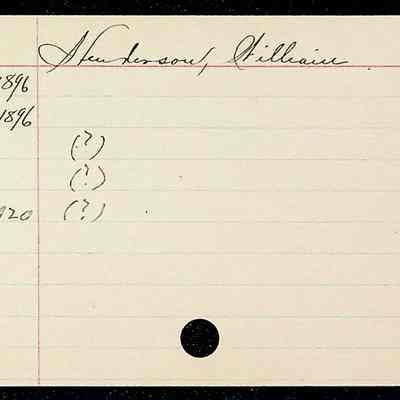 Henderson, William
1896
1896
(?)
(?)
920 (?)